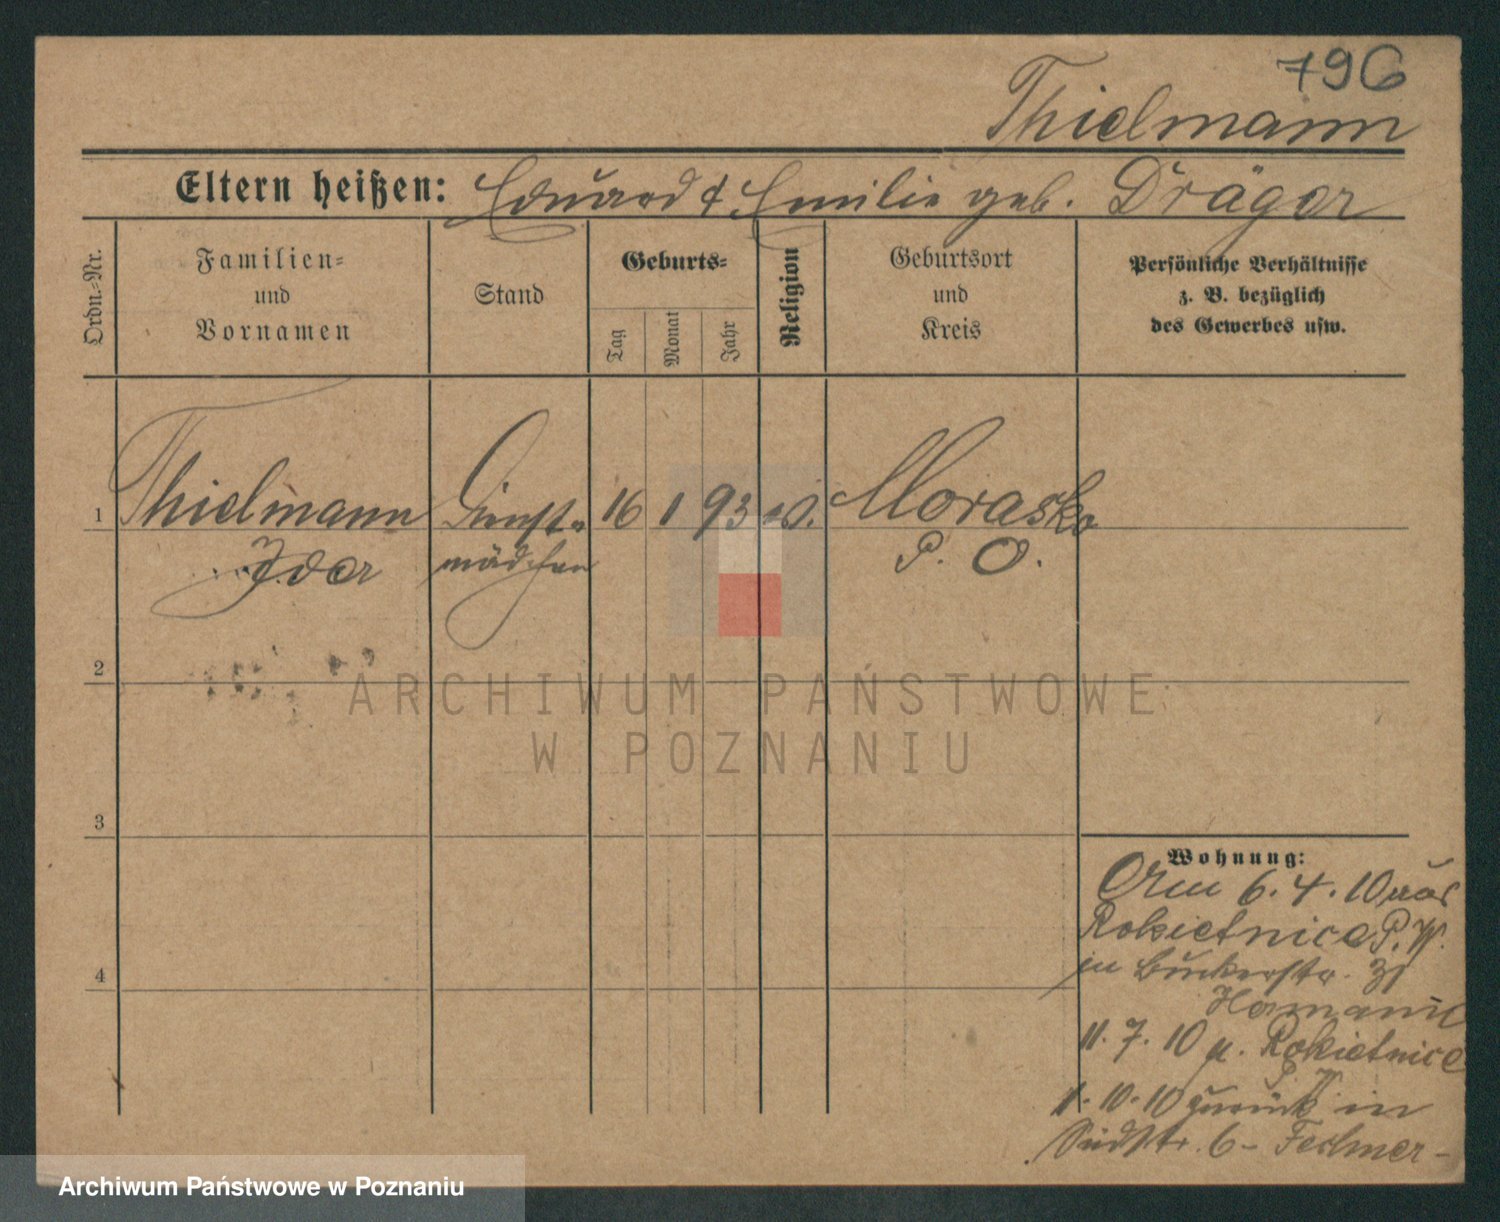 796
Thielmann
Eltern heißen: Eduard & Emilie geb. Dräger
Ordn.-Nr.
Familien-
und
Vornamen
Stand
Geburts-
Tag
Monat
Jahr
Religion
Geburtsort
und
Kreis
Persönliche Verhältnisse
z. B. bezüglich
des Gewerbes usw.
1 Thielmann Dienst- 16 1 93 Morasko
Ida mädchen P. O.
2
3
4
Wohnung:
Am 6. 4. 10 aus
Rokietnica P. W.
in Bukerstr. 31
Hamann
11. 7. 10 n. Rokietnica
P. W.
1. 10. 10 zurück in
Südstr. 6 -
ARCHIWUM PAŃSTWOWE
W POZNANIU
Archiwum Państwowe w Poznaniu